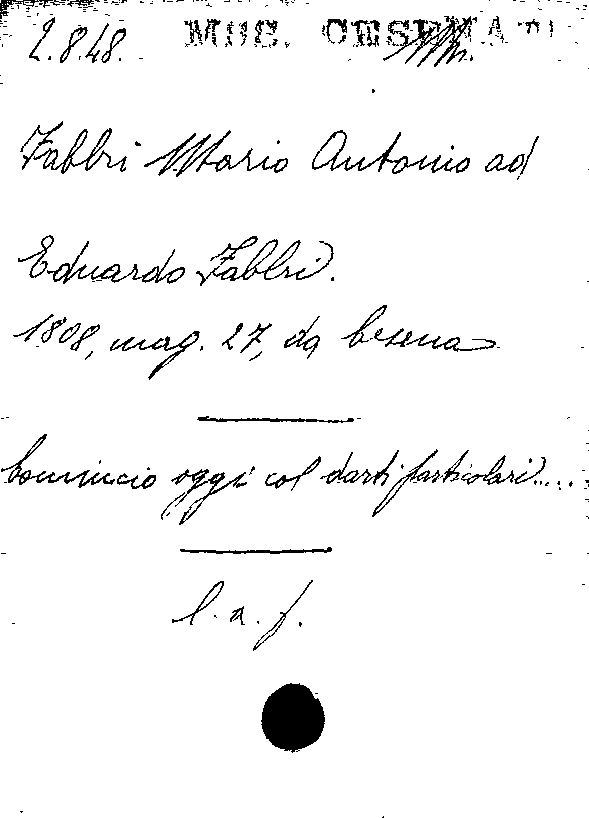 2.8.48. MSS. CESENATI
Fabbri Mario Antonio ad
Eduardo Fabbri.
1808, mag. 27, da Cesena
Comincio oggi col darti particolari.....
l. a. f.